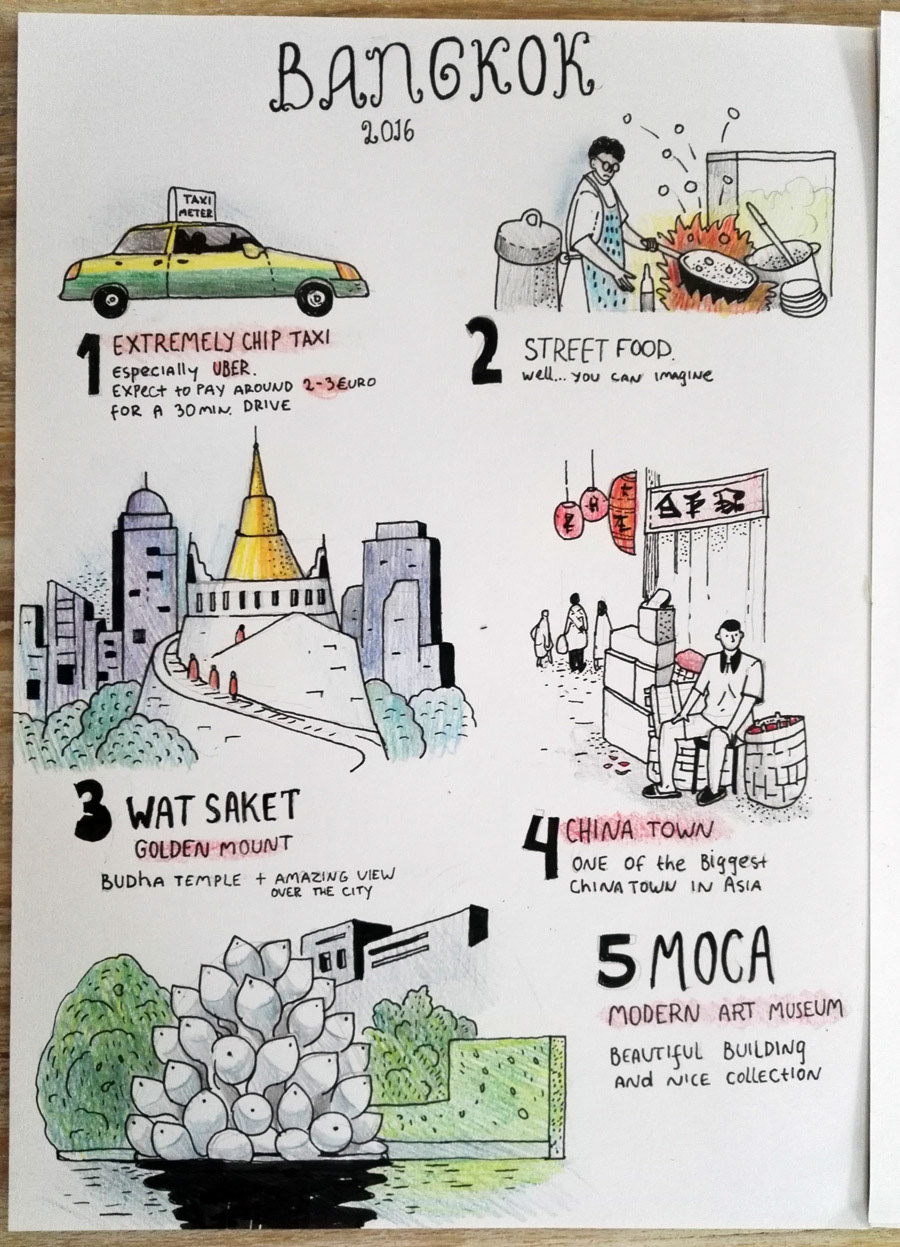 BANGKOK
2016
TAXI
METER
1 EXTREMELY CHIP TAXI
especially UBER.
EXPECT to PAY AROUND 2-3 €URO
FOR A 30 MIN. DRIVE
2 STREET FOOD.
well... you can imagine
3 WAT SAKET
GOLDEN MOUNT
BUDhA TEMPLE + AMAZING VIEW
OVER THE CITY
4 CHINA TOWN
ONE of the Biggest
CHINATOWN IN ASIA
5 MOCA
MODERN ART MUSEUM
BEAUTIFUL BUILDING
AND NICE COLLECTION